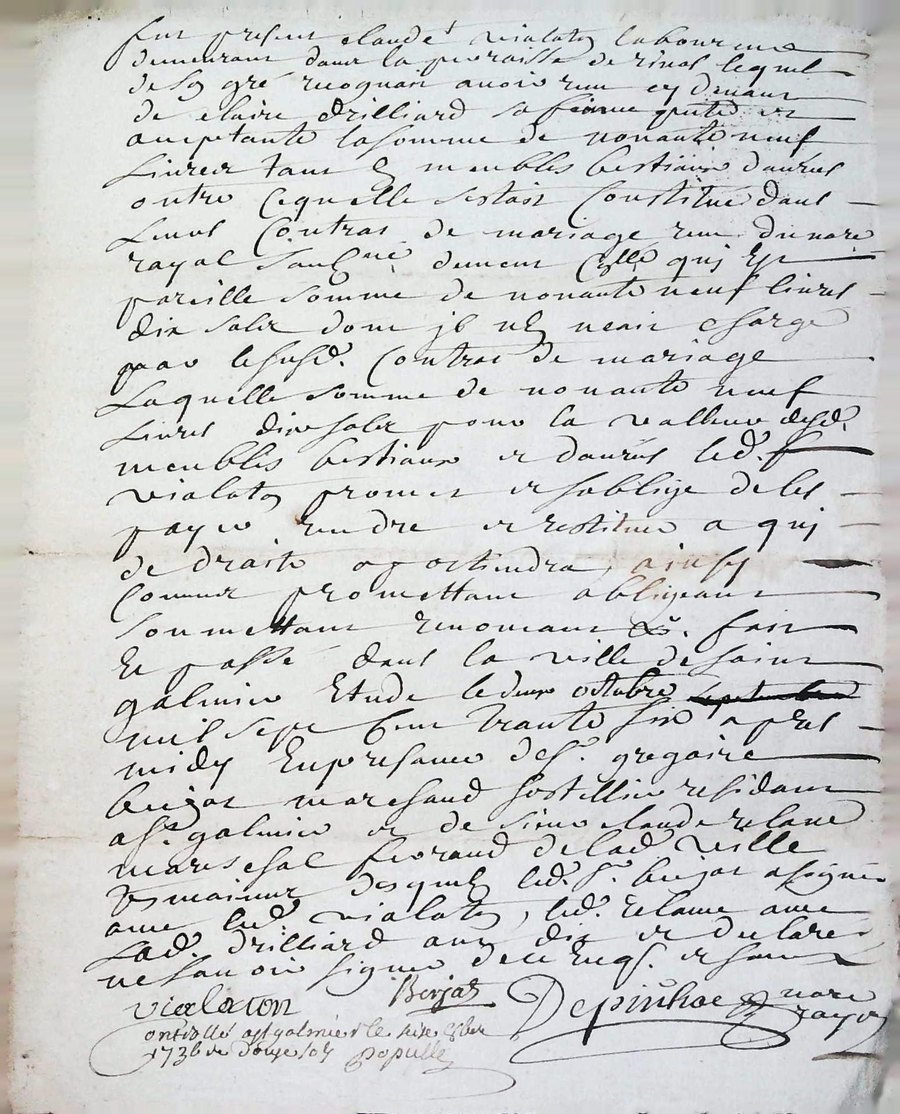 fut present claude vialaton laboureur
demeurant dans la parroisse de rivas lequel
de son gré recognoit avoir reçu cy devant
de claire drilliard sa femme présente et
acceptante la somme de nonante neuf
Livres tant en meubles bestiaux danrés
outre ce quelle sestoit Constitué dans
Leur Contrat de mariage reçu du no.re
royal soub.né demeur qui est
pareille somme de nonante neuf livres
dix sols dont il nen neroit charge
par le susd. Contrat de mariage
Laquelle somme de nonante neuf
Livres dix sols pour la valleur desd.
meubles bestiaux et danrés led.
vialaton promet et soblige de les
payer rendre et restituer a qui
de droit apartiendra, ainsy
Comme promettant obligeant
soumettant renonceant &. fait
Et passé dans la ville de saint
galmier Etude le deux octobre septembre
mil sept Cent trante six apres
midy En presence de s.r gregoire
berjat marchand hostellier residant
a s.t galmier et de sieur claude relave
mareschal ferand de lad. ville
tesmoings desquels led. s.r berjat a signé
avec led. vialaton, led. relave avec
Lad. drilliard ont dit et declaré
ne savoir signer de ce Enq.s et som
vialaton Berjat Depinhac no.re
royal
ontrollé a st galmier le seize 8bre
1736 reçu douze sols populle